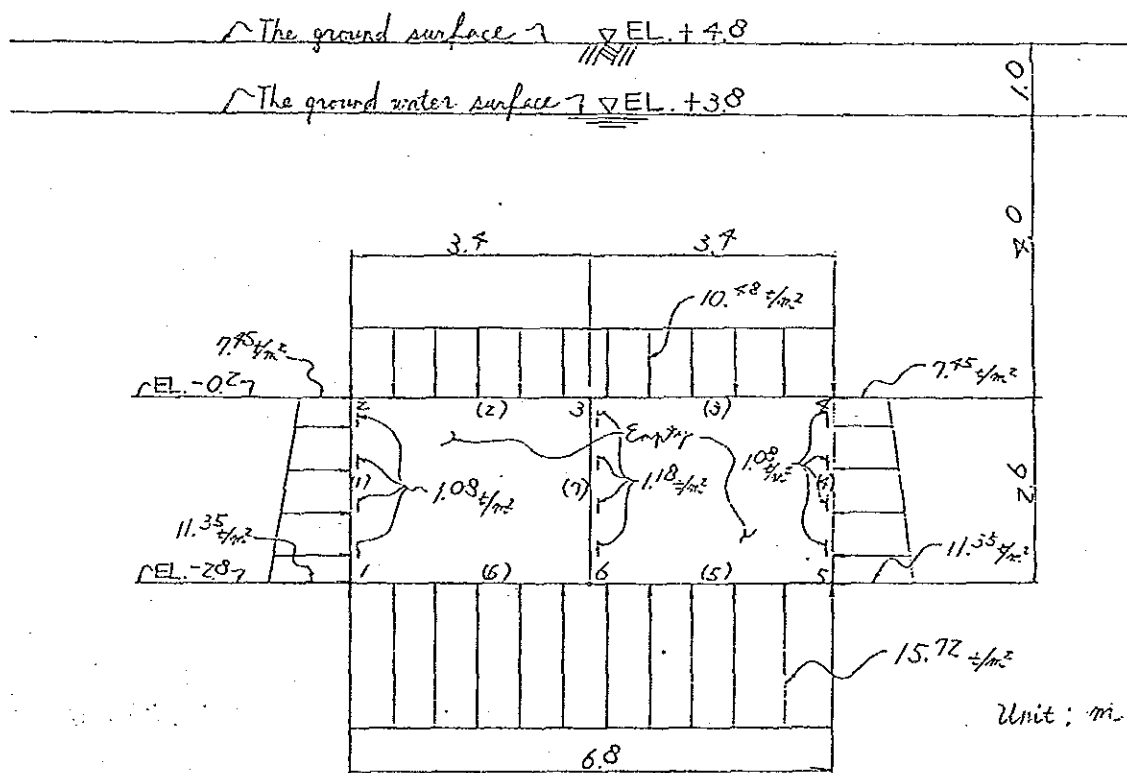 The ground surface ▽ EL. + 4.8
The ground water surface ▽ EL. +3.8
1.0
4.0
3.4 3.4
10.48 t/m²
7.45 t/m² 7.45 t/m²
EL. -0.2
2 (2) 3 (3) 4
Empty
(1) 1.08 t/m² (7) 1.18 t/m² 1.08 t/m²
2.6
11.35 t/m² 11.35 t/m²
EL. -2.8
1 (6) 6 (5) 5
15.72 t/m²
Unit : m.
6.8